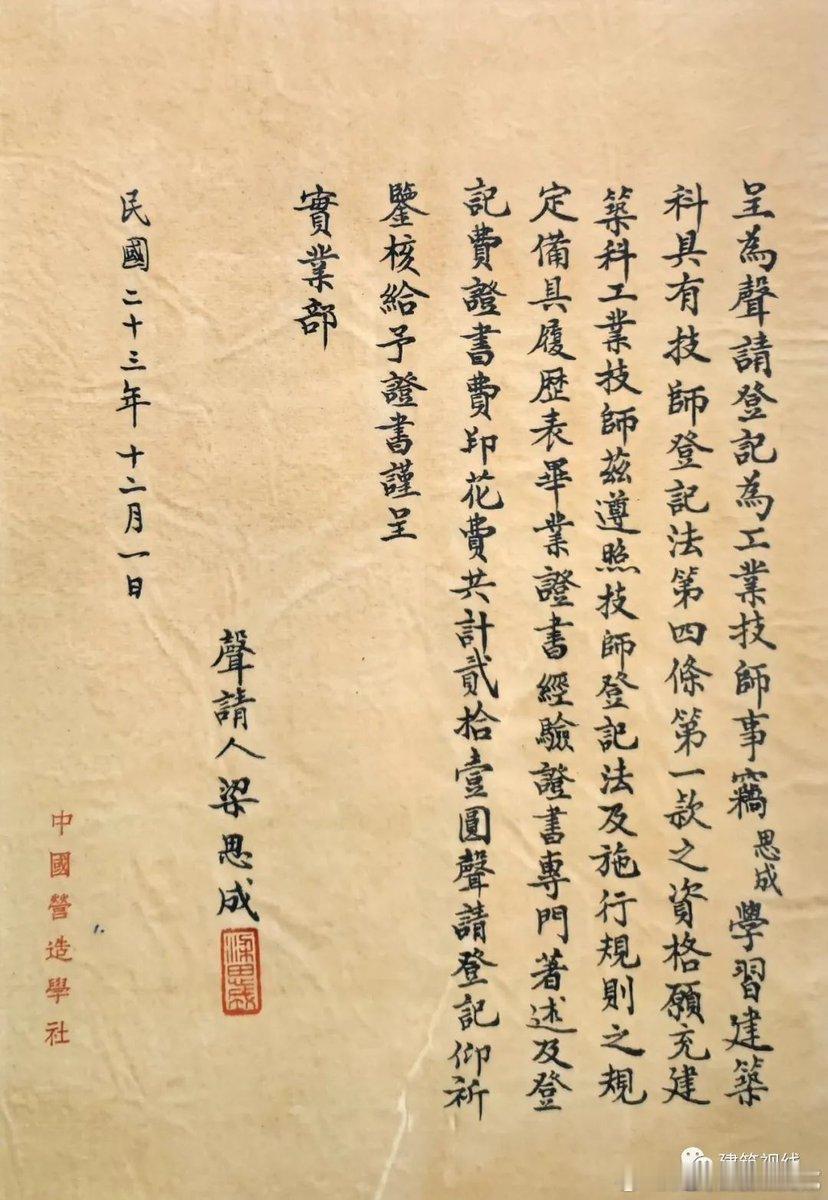 呈為聲請登記為工業技師事竊思成學習建築
科具有技師登記法第四條第一款之資格願充建
築科工業技師茲遵照技師登記法及施行規則之規
定備具履歷表畢業證書經驗證書專門著述及登
記費證書費印花費共計貳拾壹圓聲請登記仰祈
鑒核給予證書謹呈
實業部
聲請人梁思成
梁思成
民國二十三年十二月一日
中國營造學社
建筑视线